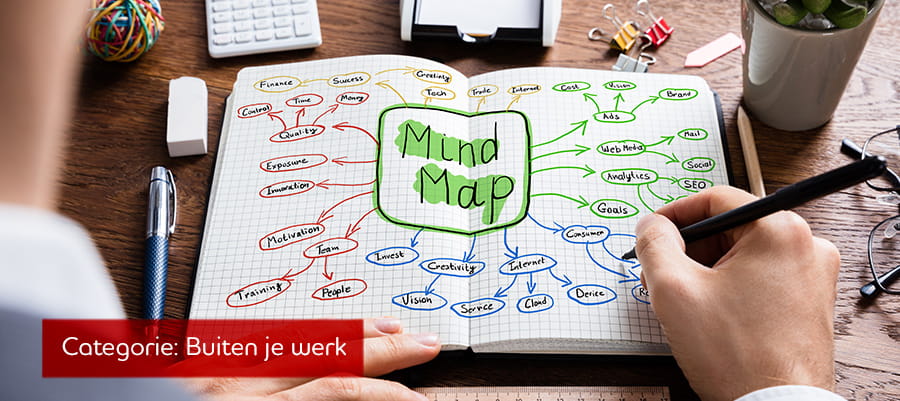 Mind
Map
Finance
Success
Creativity
Tech
Trade
Internet
Control
Time
Money
Quality
Exposure
Innovation
Motivation
Team
Training
People
Cost
Vision
Brand
Ads
Web Media
Mail
Social
Analytics
SEO
Goals
Invest
Creativity
Vision
Internet
Service
Cloud
Device
Consumer
Categorie: Buiten je werk